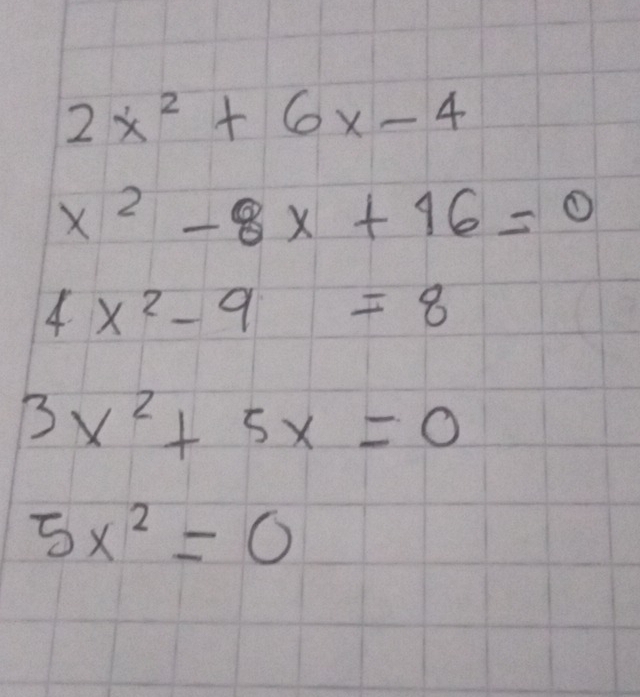 2x² + 6x - 4
x² - 8x + 16 = 0
4x² - 9 = 8
3x² + 5x = 0
5x² = 0